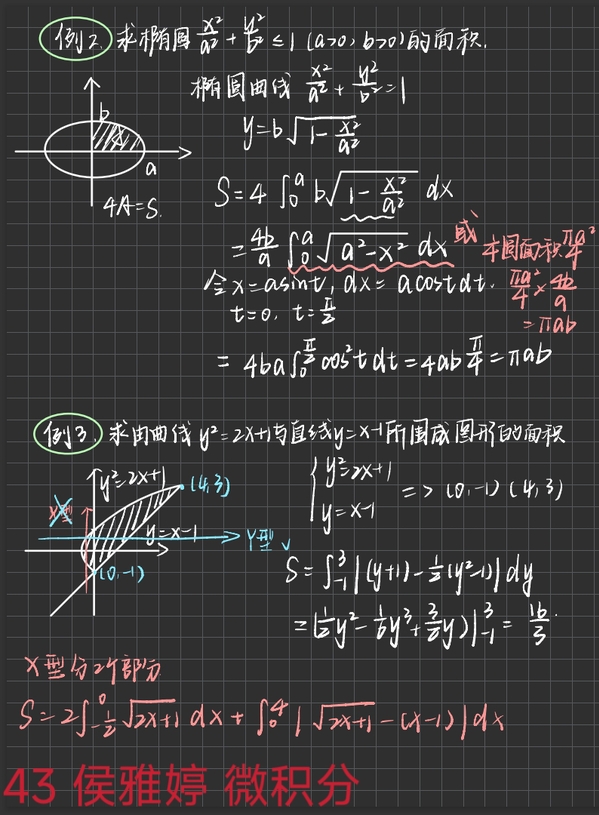 例2. 求椭圆 x²/a² + y²/b² ≤ 1 (a>0, b>0)的面积.
椭圆曲线 x²/a² + y²/b² = 1
y=b√(1-x²/a²)
b
a
4A=S.
S=4∫₀ᵃ b√(1-x²/a²) dx
=4b/a ∫₀ᵃ √(a²-x²) dx 或
圆面积πa²/4
πa²/4 × 4b/a
=πab
令x=asint, dx=acostdt.
t=0, t=π/2
=4ba∫₀^(π/2) cos²t dt=4ab π/4=πab
例3. 求由曲线y²=2x+1与直线y=x-1所围成图形的面积
y²=2x+1
(4,3)
X型
y=x-1
Y型 √
(0,-1)
{ y²=2x+1
y=x-1 => (0,-1) (4,3)
S=∫₋₁³ |(y+1)-½(y²-1)| dy
=(½y²-⅙y³+3/2y)|₋₁³ = 16/3.
X型分2个部分
S=2∫₋½⁰ √(2x+1) dx + ∫₀⁴ |√(2x+1)-(x-1)| dx
43 侯雅婷 微积分